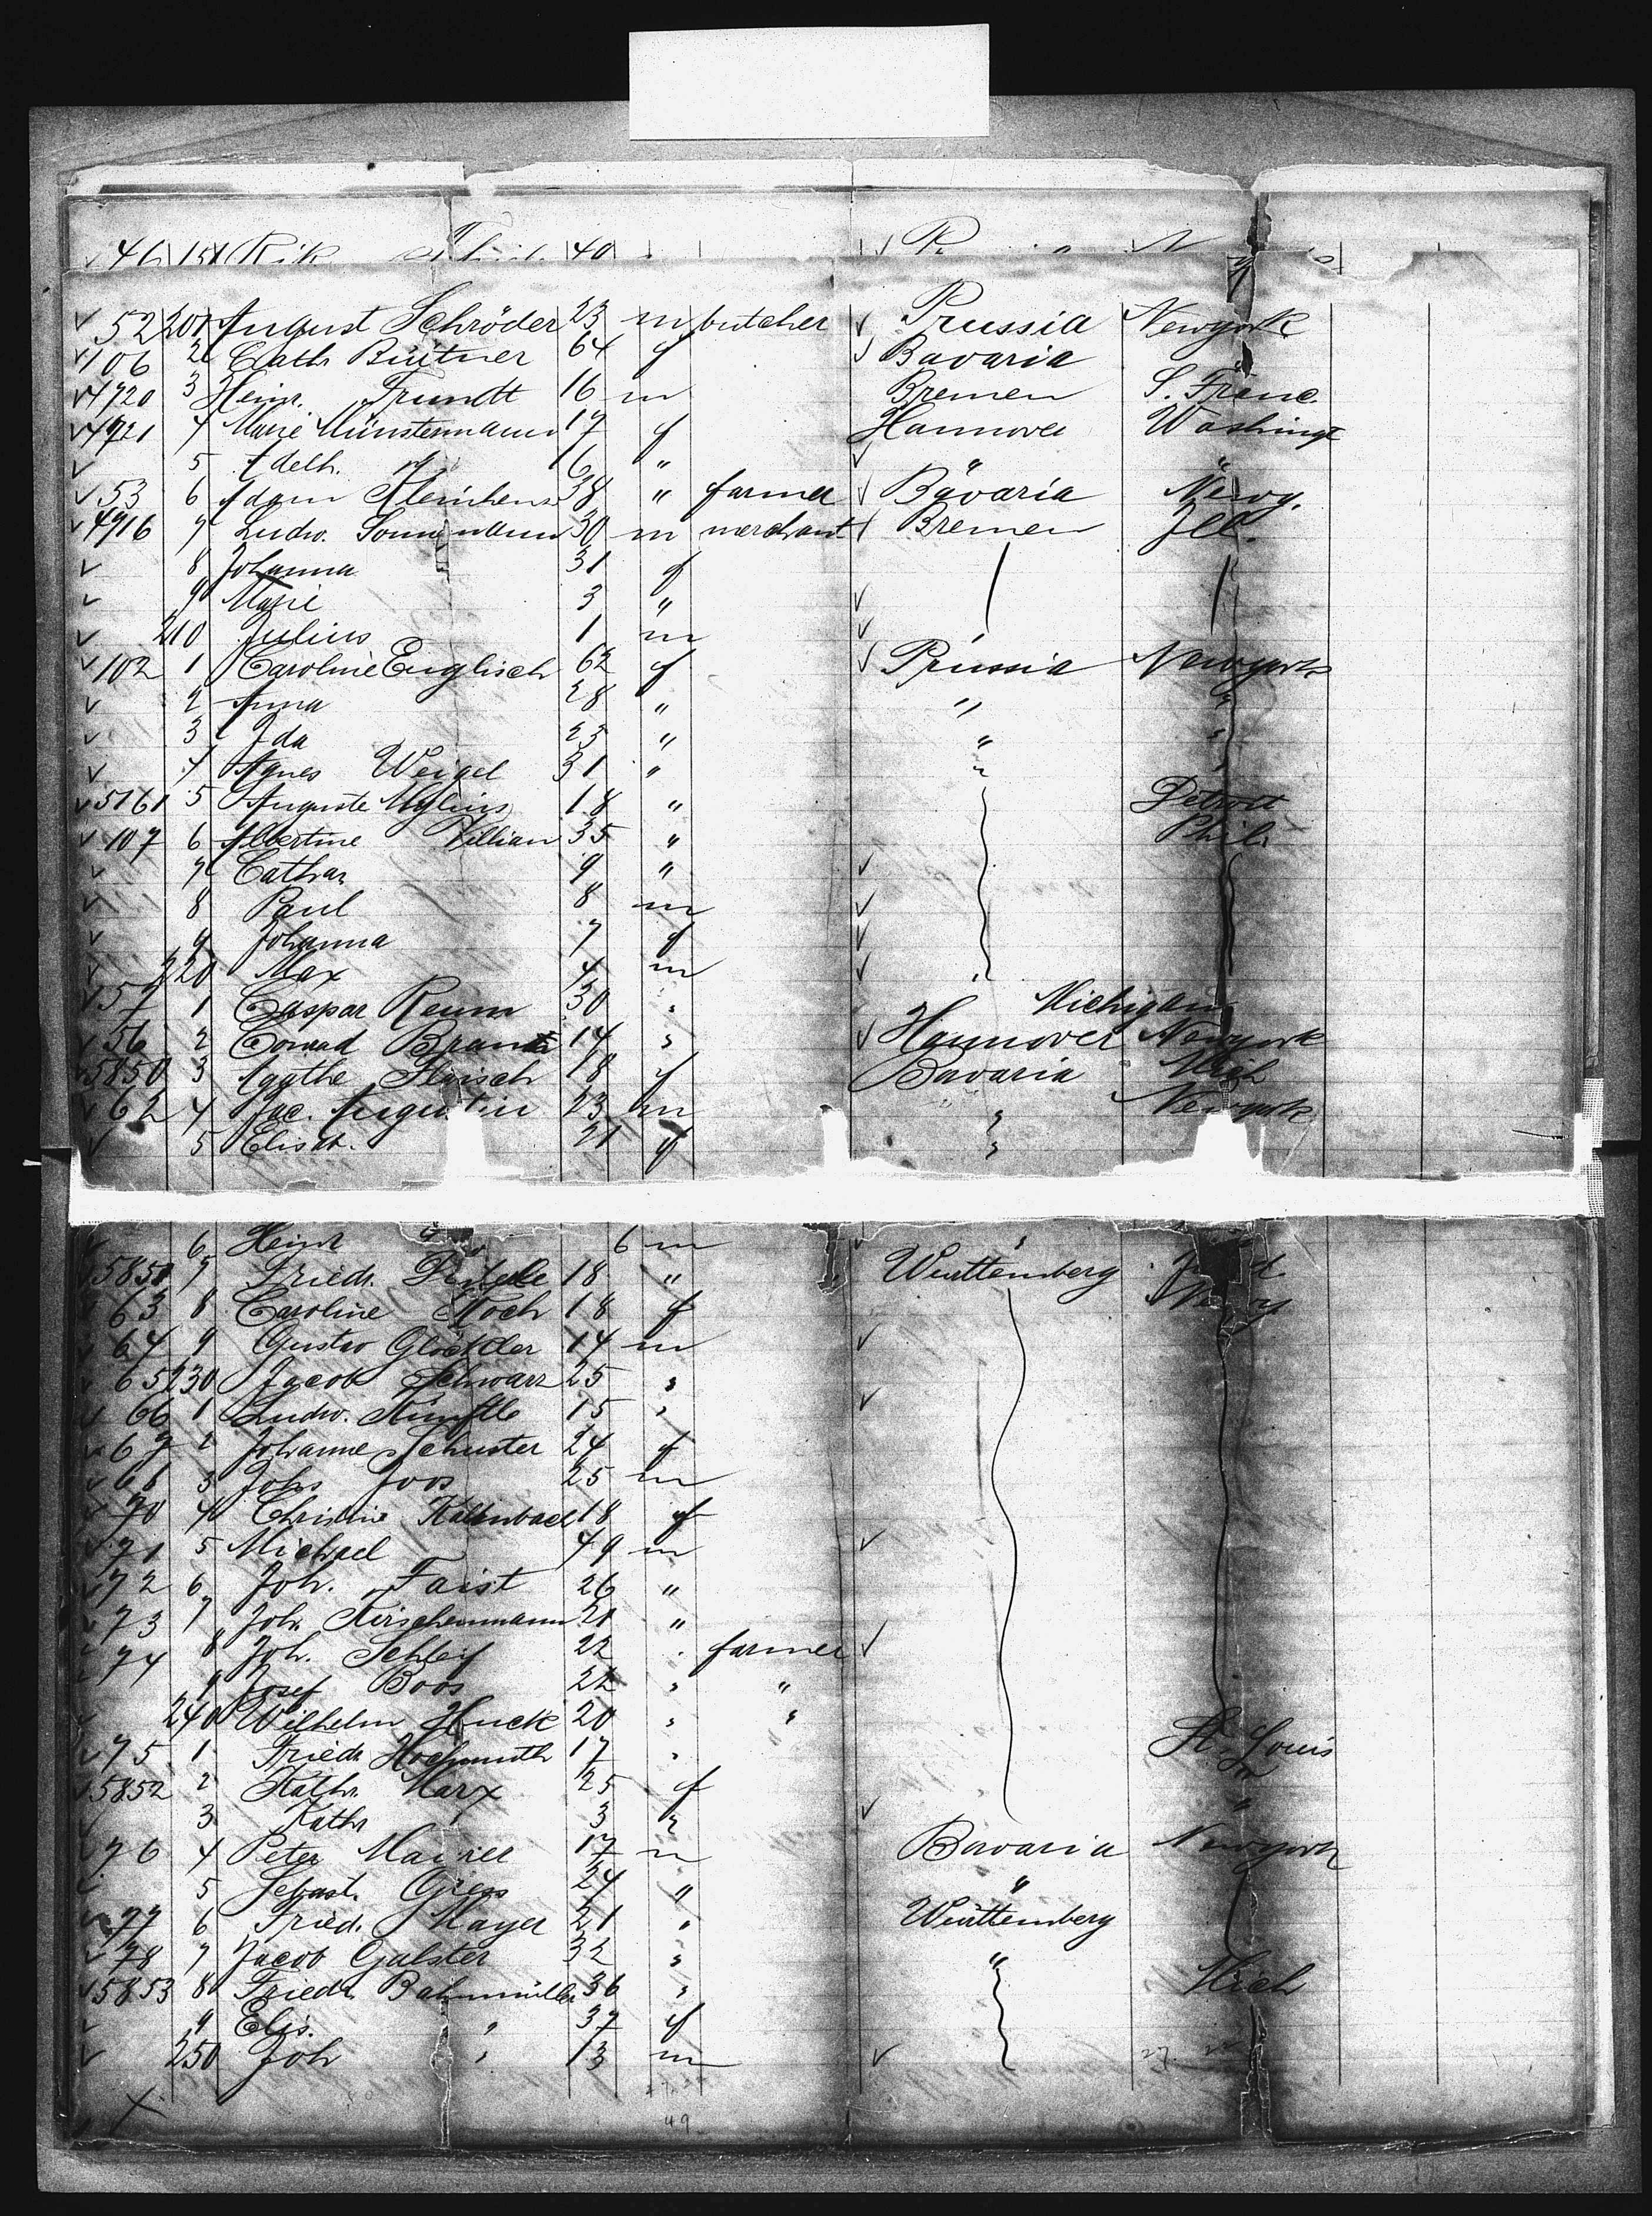 46 151 Rik 40
52 201 August Schröder 23 m butcher Prussia Newyork
106 2 Cath. Büttner 64 f Bavaria
4720 3 Heinr. Frundt 16 m Bremen S. Franc.
4721 4 Marie Münstermann 17 f Hannover Washingt
5 Adelh. " 16 " " "
53 6 Adam Kleinhenz 38 " farmer Bavaria Newy.
4916 7 Ludw. Sonnemann 30 m merchant Bremen Ill.
8 Johanna 31 f
9 Marie 3 "
210 Julius 1 m
102 1 Caroline Englisch 62 f Prussia Newyork
2 Anna 28 " " "
3 Ida 25 " " "
4 Agnes Weigel 31 " " "
5161 5 Auguste Mylius 18 " Detroit
107 6 Albertine Villian 35 " Phil.
7 Cathar. 9 "
8 Paul 8 m
9 Johanna 7 f
220 Max 4 m
57 1 Caspar Reum 30 " Michigan
56 2 Conrad Brandt 14 " Hannover Newyork
5850 3 Agathe Fleisch 18 f Bavaria Mich
62 4 Jac. Augustin 23 m " Newyork
5 Elisab. 21 f "
6 Heinr " 6 m "
5851 7 Friedr. 18 " Württemberg
63 8 Caroline Koch 18 f Newy
64 9 Gustav Glöckler 14 m
65 230 Jacob Schwarz 25 "
66 1 Ludw. Künstle 15 "
67 2 Johanne Schuster 24 f
68 3 Johs Joos 25 m
70 4 Christine Kaltenbach 18 f
71 5 Michael 49 m
72 6 Joh. Faist 26 "
73 7 Joh. Kirschenmann 21 "
74 8 Joh. Schleif 22 " farmer
9 Josef Boos 22 " "
240 Wilhelm Huck 20 " "
75 1 Friedr Hochmuth 17 " St. Louis
5852 2 Kathr. Marx 25 f "
3 Kathr 3 " "
76 4 Peter 17 m Bavaria Newyork
5 Sebast. Giess 24 " "
77 6 Fried. Mayer 21 " Württemberg
78 7 Jacob Galster 32 " "
5853 8 Friedr. Bahnmüller 36 " Mich
9 Elis. " 37 f
250 Joh " 13 m
X
49